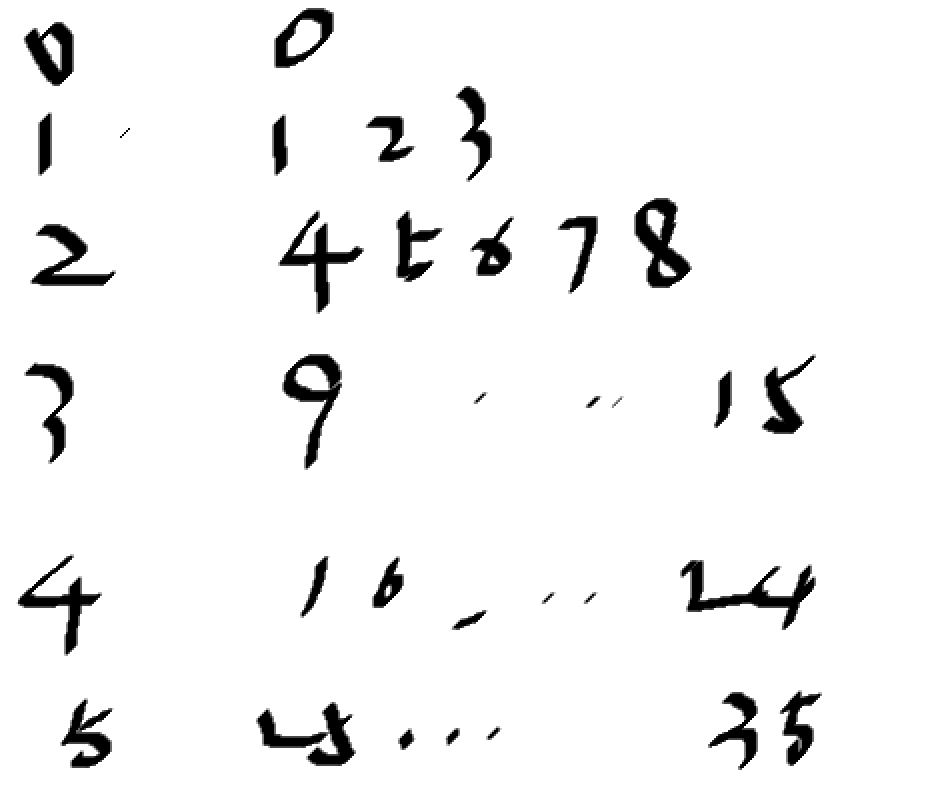 0 0
1 1 2 3
2 4 5 6 7 8
3 9 ... 15
4 16 ... 24
5 25 ... 35